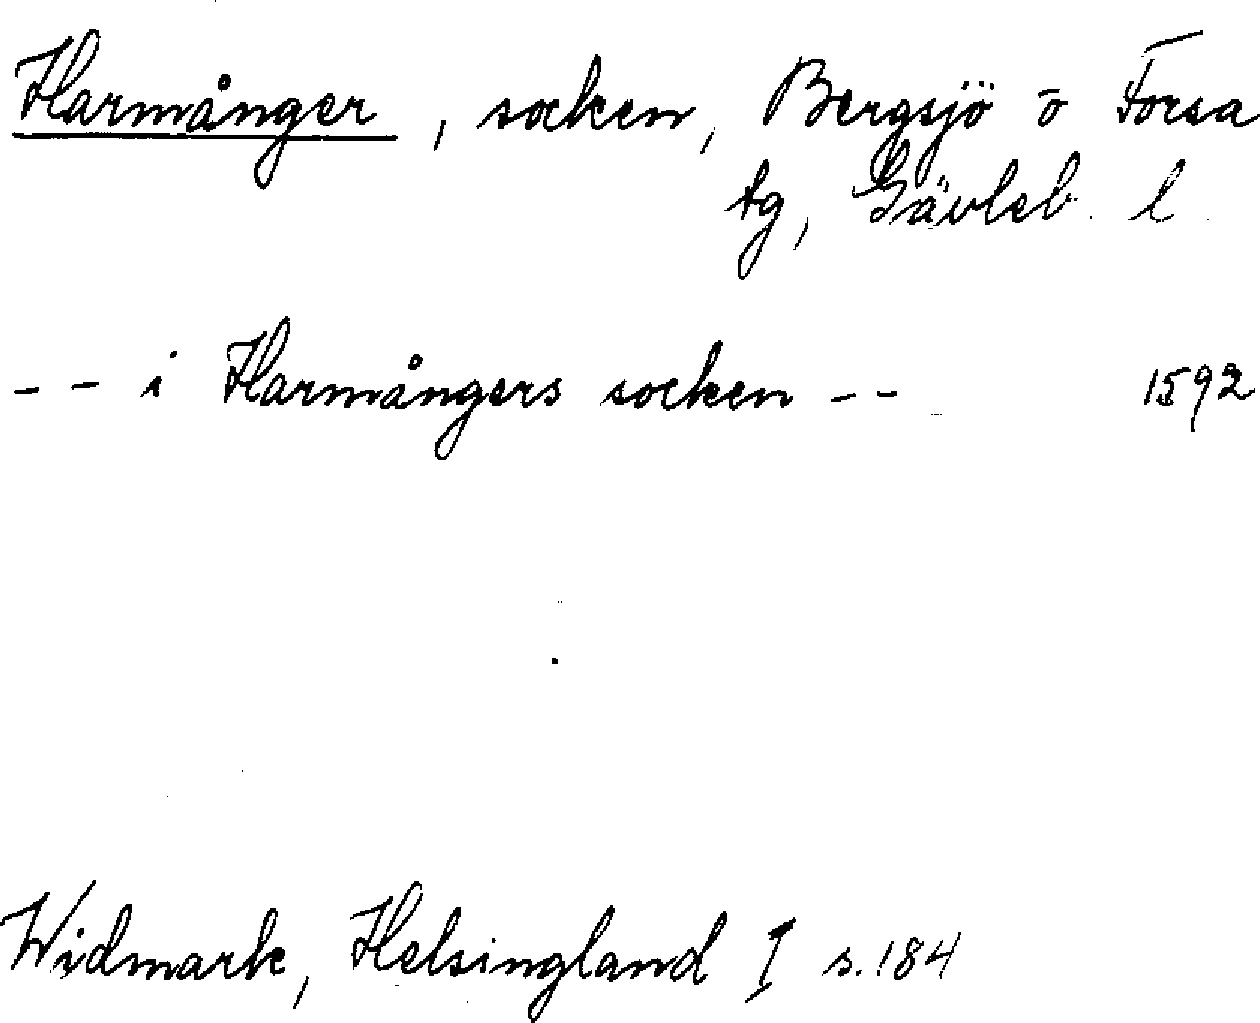 Harmånger, socken, Bergsjö o Forsa
tg, Gävleb. l.
-- i Harmångers socken -- 1592
Widmark, Helsingland I s. 184